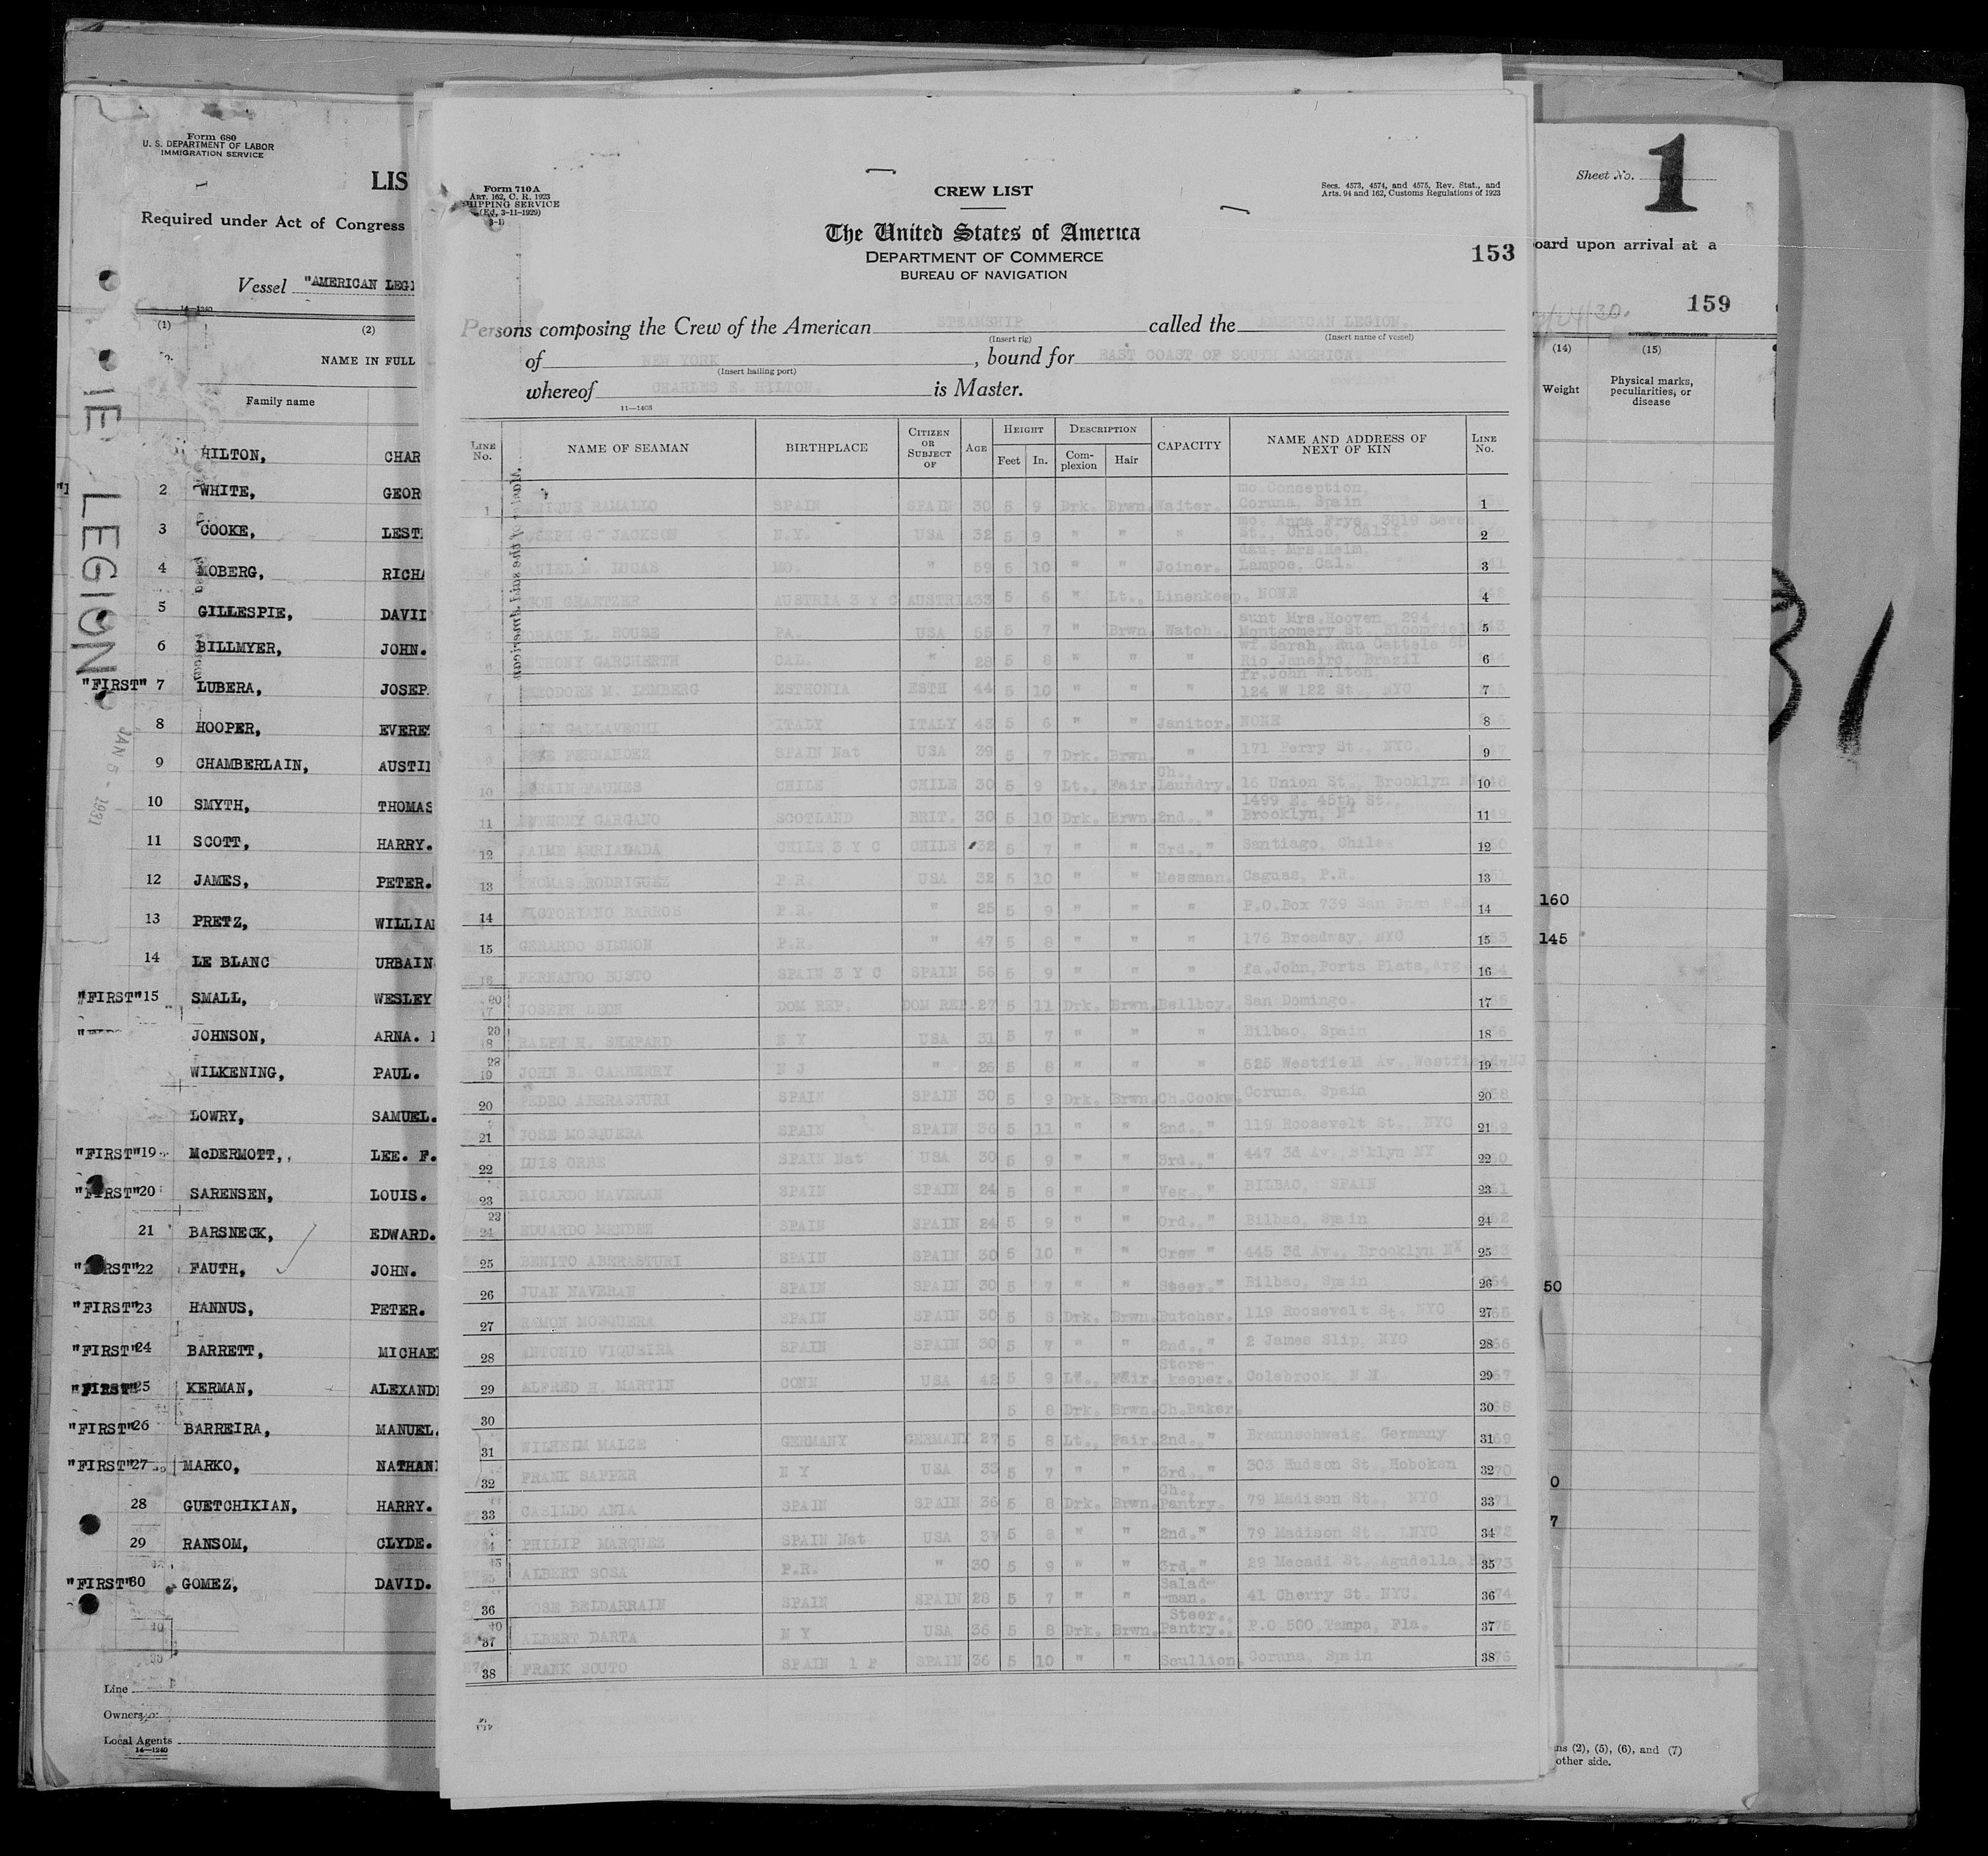 Form 680
U. S. DEPARTMENT OF LABOR
IMMIGRATION SERVICE
LIS
Required under Act of Congress
Vessel "AMERICAN LEGI
14—1240
(1) (2)
NAME IN FULL
Family name
HILTON, CHAR
2 WHITE, GEOR
3 COOKE, LEST
4 MOBERG, RICHA
5 GILLESPIE, DAVID
6 BILLMYER, JOHN.
"FIRST" 7 LUBERA, JOSEP
8 HOOPER, EVERE
9 CHAMBERLAIN, AUSTIN
10 SMYTH, THOMAS
11 SCOTT, HARRY.
12 JAMES, PETER.
13 PRETZ, WILLIAM
14 LE BLANC URBAIN
"FIRST" 15 SMALL, WESLEY
JOHNSON, ARNA.
WILKENING, PAUL.
LOWRY, SAMUEL.
"FIRST" 19 McDERMOTT, LEE. F.
"FIRST" 20 SARENSEN, LOUIS.
21 BARSNECK, EDWARD.
"FIRST" 22 FAUTH, JOHN.
"FIRST" 23 HANNUS, PETER.
"FIRST" 24 BARRETT, MICHAE
"FIRST" 25 KERMAN, ALEXAND
"FIRST" 26 BARREIRA, MANUEL.
"FIRST" 27 MARKO, NATHAN
28 GUETCHIKIAN, HARRY.
29 RANSOM, CLYDE.
"FIRST" 30 GOMEZ, DAVID.
Line
Owners
Local Agents
14—1240
LEGION
JAN 5 - 1931
Form 710A
ART. 162, C. R. 1923
SHIPPING SERVICE
(Ed. 3-11-1929)
CREW LIST
Secs. 4573, 4574, and 4575, Rev. Stat., and
Arts. 94 and 162, Customs Regulations of 1923
The United States of America
DEPARTMENT OF COMMERCE
BUREAU OF NAVIGATION
153
Persons composing the Crew of the American STEAMSHIP called the AMERICAN LEGION.
(Insert rig) (Insert name of vessel)
of NEW YORK, bound for EAST COAST OF SOUTH AMERICA.
(Insert hailing port)
whereof CHARLES E. HILTON. is Master.
11—1403
LINE No. NAME OF SEAMAN BIRTHPLACE CITIZEN OR SUBJECT OF AGE HEIGHT Feet In. DESCRIPTION Complexion Hair CAPACITY NAME AND ADDRESS OF NEXT OF KIN LINE No.
1 RAMALLO SPAIN SPAIN 30 5 9 Drk. Brwn. Waiter. mo Conception, Coruna, Spain 1
JOSEPH G. JACKSON N.Y. USA 32 5 9 " " " mo. Anna Frye, 3619 Seven St., Chico, Calif. 2
DANIEL M. LUCAS MO. " 59 5 10 " " Joiner. dau. Mrs.Helm, Lampoc, Cal. 3
GRAETZER AUSTRIA 3 Y C AUSTRIA 33 5 6 " Lt., Linenkeep. NONE 4
HORACE L. ROUSE PA. USA 55 5 7 " Brwn. Watch. aunt Mrs.Hooven, 294 Montgomery St. Bloomfield 5
6 ANTHONY GARCHERTH CAL. " 28 5 8 " " " wf.Sarah, Rua Cattete Rio Janeiro, Brazil 6
7 THEODORE M. LEMBERG ESTHONIA ESTH 44 5 10 " " " fr.John Walton, 124 W 122 St., NYC 7
8 GALLAVECHI ITALY ITALY 43 5 6 " " Janitor. NONE 8
9 JOSE FERNANDEZ SPAIN Nat USA 39 5 7 Drk. Brwn. " 171 Perry St., NYC. 9
10 EFRAIN FAUNES CHILE CHILE 30 5 9 Lt., Fair. Ch., Laundry. 16 Union St., Brooklyn NY 10
11 ANTHONY GARGANO SCOTLAND BRIT. 30 5 10 Drk. Brwn. 2nd., " 1499 E. 45th St., Brooklyn, NY 11
12 JAIME ARRIADADA CHILE 3 Y C CHILE 32 5 7 " " 3rd., " Santiago, Chile 12
13 THOMAS RODRIGUEZ P.R. USA 32 5 10 " " Messman. Caguas, P.R. 13
14 VICTORIANO BARROS P.R. " 25 5 9 " " " P.O.Box 739 San Juan P.R 14
15 GERARDO SIMMON P.R. " 47 5 8 " " " 176 Broadway, NYC 15
16 FERNANDO BUSTO SPAIN 3 Y C SPAIN 56 5 9 " " " fa.John,Porta Plata,Arg. 16
17 JOSEPH LEON DOM REP. DOM REP. 27 5 11 Drk. Brwn. Bellboy. San Domingo. 17
18 RALPH H. SHEPARD N Y USA 31 5 7 " " " Bilbao, Spain 18
19 JOHN B. CARBERRY N J " 26 5 8 " " " 525 Westfield Av. Westfield NJ 19
20 PEDRO ABERASTURI SPAIN SPAIN 30 5 9 Drk. Brwn. Ch.Cook. Coruna, Spain 20
21 JOSE MOSQUERA SPAIN SPAIN 36 5 11 " " 2nd., " 119 Roosevelt St., NYC 21
22 LUIS ORBE SPAIN Nat USA 30 5 9 " " 3rd., " 447 3d Av., B'klyn NY 22
23 RICARDO NAVERAN SPAIN SPAIN 24 5 8 " " Veg., " BILBAO, SPAIN 23
24 EDUARDO MENDEZ SPAIN SPAIN 24 5 9 " " Ord., " Bilbao, Spain 24
25 BENITO ABERASTURI SPAIN SPAIN 30 5 10 " " Crew " 445 3d Av., Brooklyn NY 25
26 JUAN NAVERAN SPAIN SPAIN 30 5 7 " " Steer. " Bilbao, Spain 26
27 RAMON MOSQUERA SPAIN SPAIN 30 5 8 Drk. Brwn. Butcher. 119 Roosevelt St. NYC 27
28 ANTONIO VIQUEIRA SPAIN SPAIN 30 5 7 " " 2nd., " 2 James Slip, NYC 28
29 ALFRED H. MARTIN CONN USA 42 5 9 Lt., Fair. Store-keeper. Colebrook, N.H. 29
30 5 8 Drk. Brwn. Ch.Baker. 30
31 WILHELM MALZE GERMANY GERMANY 27 5 8 Lt., Fair. 2nd. " Braunschweig, Germany 31
32 FRANK SAPPER N Y USA 33 5 7 " " 3rd., " 303 Hudson St., Hoboken 32
33 CASILDO ANIA SPAIN SPAIN 36 5 8 Drk. Brwn. Ch., Pantry. 79 Madison St., NYC 33
PHILIP MARQUEZ SPAIN Nat USA 37 5 8 " " 2nd. " 79 Madison St., NYC 34
35 ALBERT SOSA P.R. " 30 5 9 " " 3rd. " 29 Mecadi St. Agudella, 35
36 JOSE BELDARRAIN SPAIN SPAIN 28 5 7 " " Salad-man. 41 Cherry St. NYC. 36
37 ALBERT DARTA N Y USA 36 5 8 Drk. Brwn. Steer., Pantry. P.O.500 Tampa, Fla. 37
38 FRANK SOUTO SPAIN 1 P SPAIN 36 5 10 " " Scullion. Coruna, Spain 38
Sheet No. 1
oard upon arrival at a
159
(14) (15)
Weight Physical marks, peculiarities, or disease
160
145
50
0
7
ns (2), (5), (6), and (7)
other side.
31